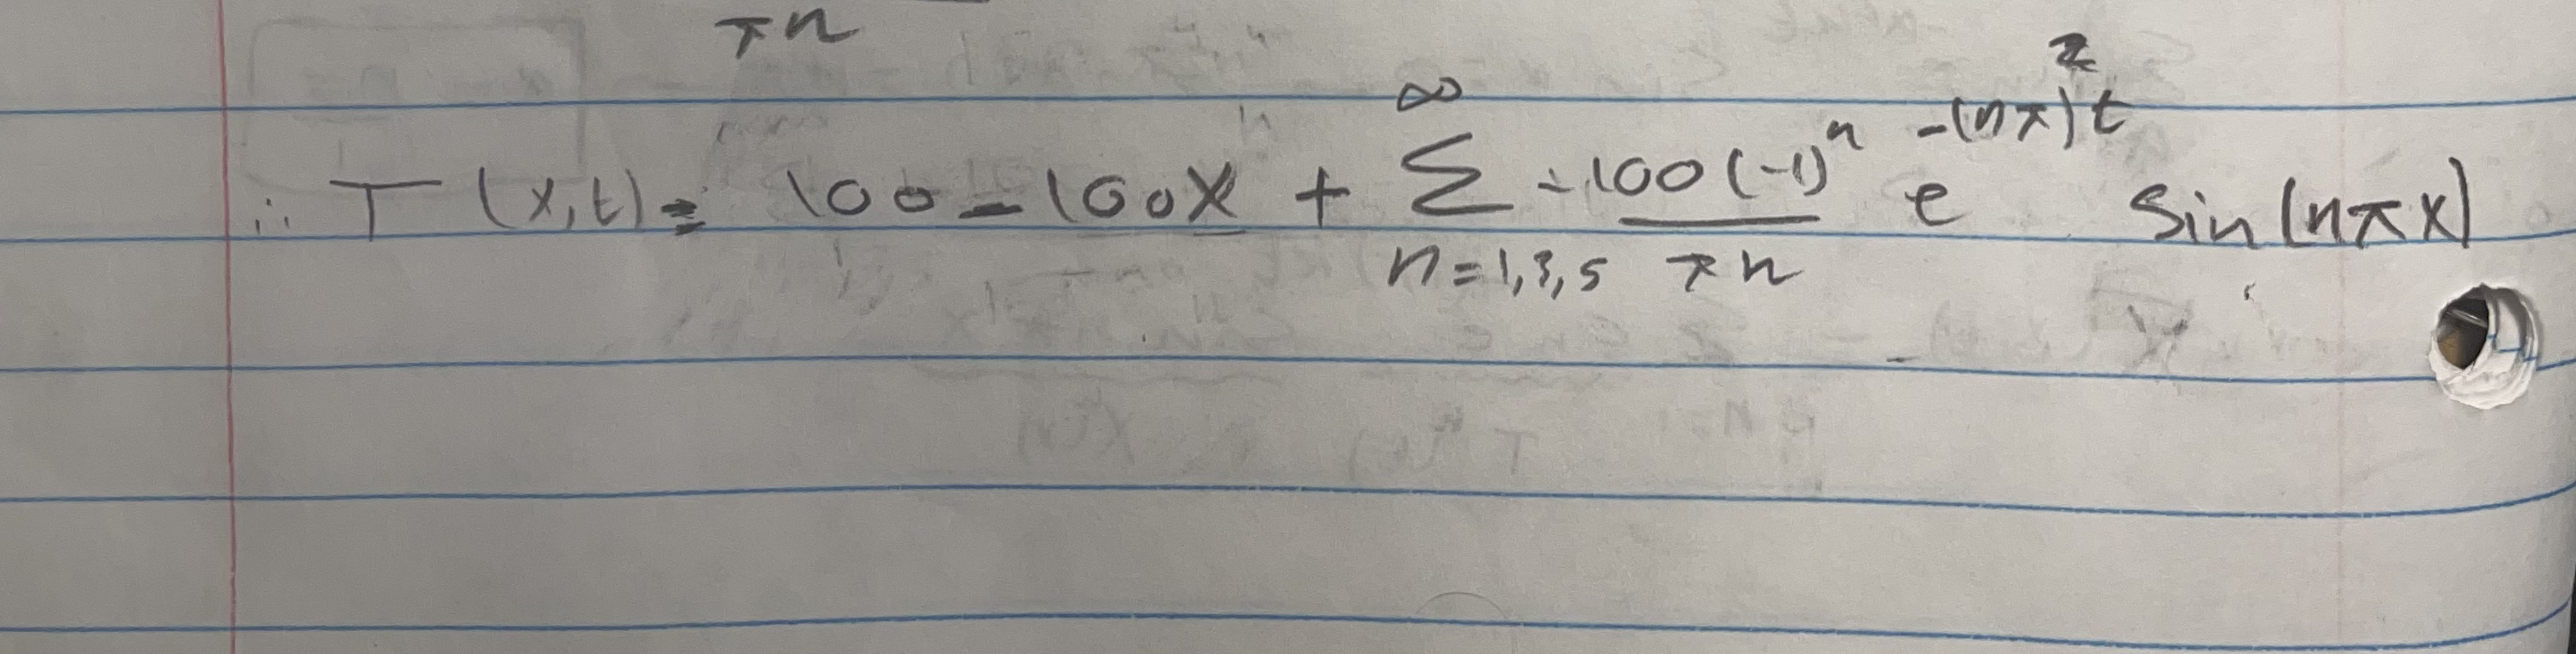 πn
∴ T(x,t) = 100 - 100x + ∑_{n=1,3,5}^{∞} \frac{-100(-1)^n}{πn} e^{-(nπ)^2 t} sin(nπx)